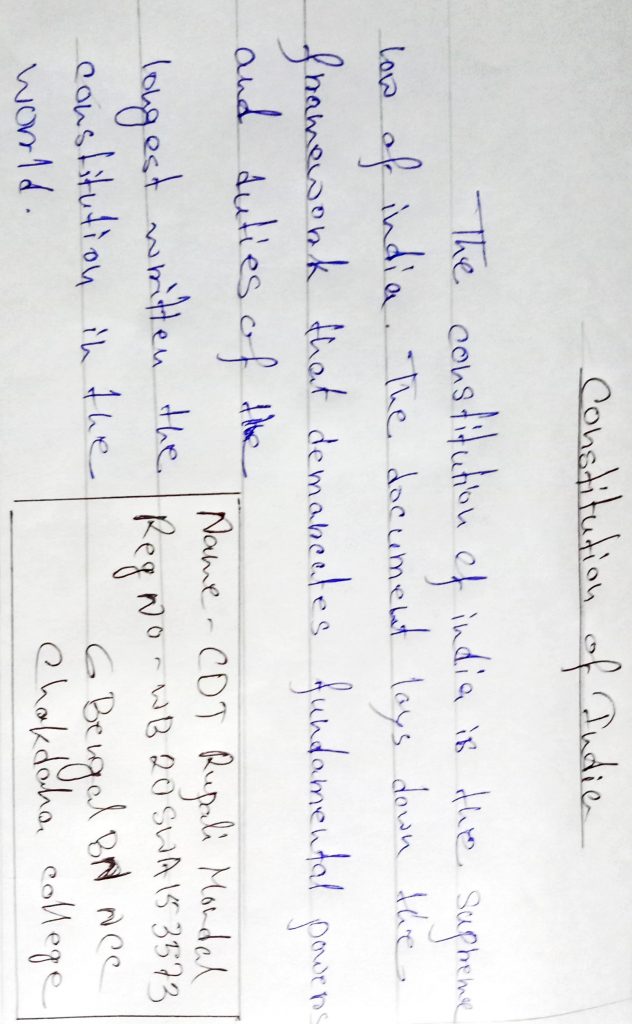 Constitution of India
The constitution of india is the supreme
low of india. The document lays down the
framework that demarcates fundamental powers
and duties of the
longest written the
constitution in the
world.
Name - CDT Rupali Mondal
Reg No - WB20SWA153573
6 Bengal BN NCC
Chakdaha college